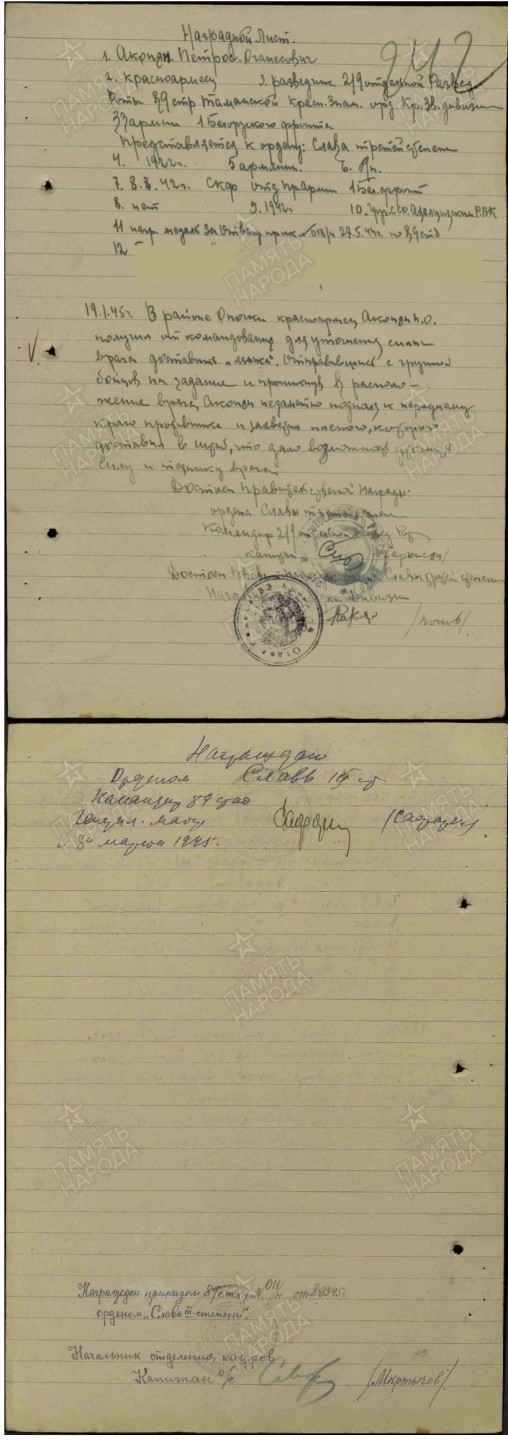 Наградной Лист.
942
1. Акопян Петрос Оганесович
2. красноармеец 3. разведчик 219 отдельной Развед
Роты 89 стр Таманской Красн. Знам. орд Кр. Зв. дивизии
33 армии 1 Белорусского фронта
Представляется к ордену: Слава третей степени
4. 1922 г. 5 армянин. 6.
7. 8.8.42г. Скф 1 Бел. фронт
8. нет 9. 1942г 10. РВК
11 нагр. медаль За Отвагу прик. 27.5.44г. по 89 стд
12
19.1.45г. В районе Опочки красноармеец Акопян П.О.
получил от командования для уточнения силы
врага доставить „языка". Отправившись с группой
бойцов на задание и проникнув в располо-
жение врага, Акопян незаметно подполз к переднему
краю противника и захватил пленного, которого
доставил в штаб, что дало возможность уточнить
силу и технику врага.
Достоин Правительственной Награды:
ордена Славы третей степени
Командир 219 отдельной развед Роты
капитан
Достоин Славы третей степени
дивизии
/Попов/
Награждаю
Орденом Славы III ст.
Командир 89 стд
Генерал-майор (Сафарян)
„8" марта 1945г.
Награжден приказом 89 № 011/н от 8.03.45г.
орденом „Слава III степени".
Начальник отделения кадров
Капитан а/с /Мкртычев/
ПАМЯТЬ
НАРОДА